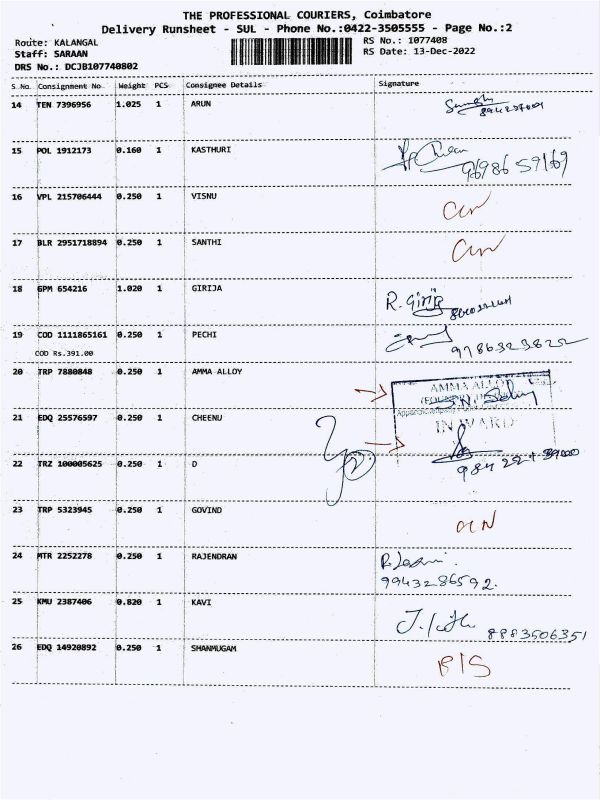 THE PROFESSIONAL COURIERS, Coimbatore
Delivery Runsheet - SUL - Phone No.:0422-3505555 - Page No.:2
Route: KALANGAL
RS No.: 1077408
Staff: SARAAN
RS Date: 13-Dec-2022
DRS No.: DCJB107740802
S.No. Consignment No Weight PCS Consignee Details Signature
14 TEN 7396956 1.025 1 ARUN
15 POL 1912173 0.160 1 KASTHURI
9698659169
16 VPL 215706444 0.250 1 VISNU
17 BLR 2951718894 0.250 1 SANTHI
18 GPM 654216 1.020 1 GIRIJA R. Girija
19 COD 1111865161 0.250 1 PECHI
COD Rs.391.00
9786323822
20 TRP 7880848 0.250 1 AMMA ALLOY
AMMA ALLOY
21 EDQ 25576597 0.250 1 CHEENU
INWARD
22 TRZ 100005625 0.250 1 D
23 TRP 5323945 0.250 1 GOVIND
24 MTR 2252278 0.250 1 RAJENDRAN
9943286592.
25 KMU 2387406 0.820 1 KAVI
8883506351
26 EDQ 14920892 0.250 1 SHANMUGAM